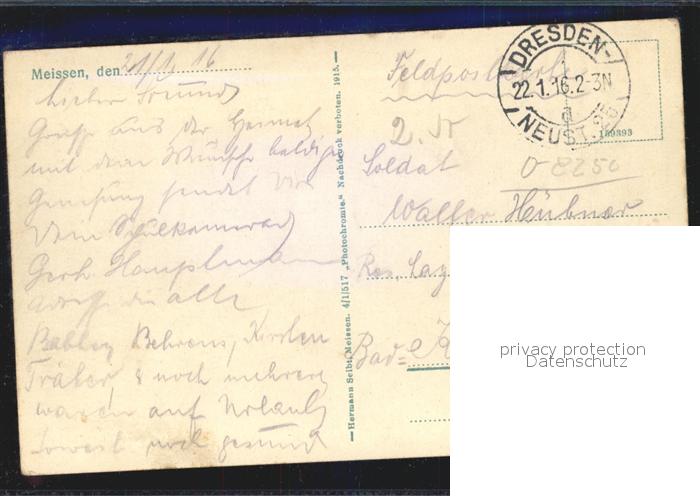 Meissen, den 21/1 16
Lieber Freund
Grüße aus der Heimat
mit dem Wunsche baldige
Genesung sendet Dir
Dein Schulkamerad
Gerh. Hauptmann
alle
Behrens,
Träber & noch mehrere
waren auf Urlaub
soweit noch gesund
Hermann Seibt, Meissen. 4/1/517 „Photochromie." Nachdruck verboten. 1915.
Feldpostkarte
DRESDEN-
22.1.16.2-3N
NEUST.
159393
Soldat
8250
Walter Hübner
Res. Laz
Bad-
privacy protection
Datenschutz